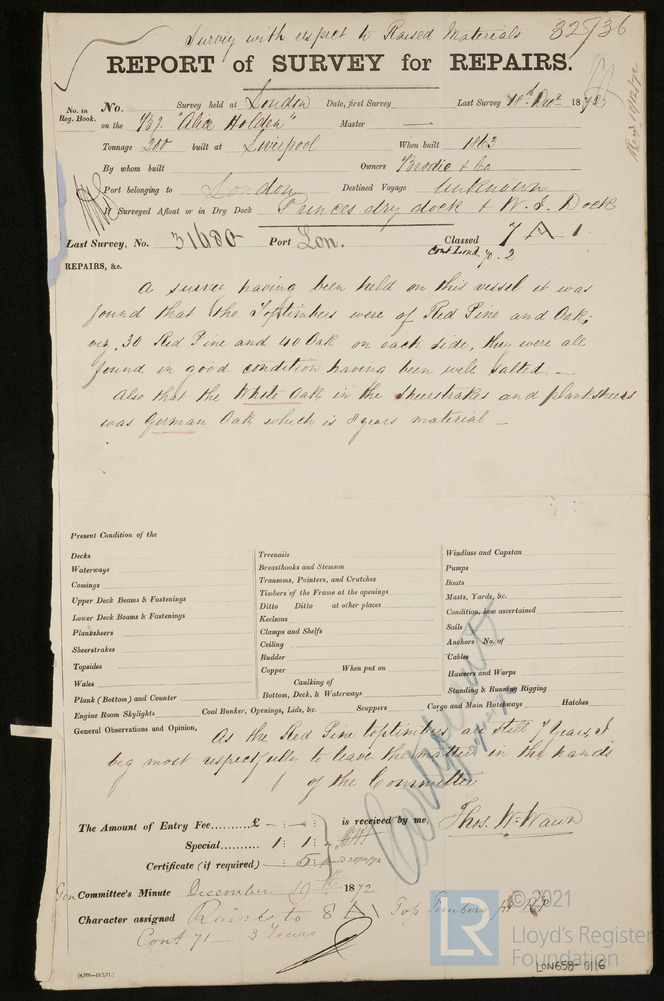 Survey with respect to Raised Materials 32736
REPORT of SURVEY for REPAIRS.
No. in Reg. Book. No. Survey held at London Date, first Survey Last Survey 10th Decr 1872
Recd 19/12/72
on the Bg. "Alice Holden" Master —
Tonnage 200 built at Liverpool When built 1863
By whom built Owners Brodie & Co
Port belonging to London Destined Voyage Unknown
If Surveyed Afloat or in Dry Dock Princes dry dock & W. I. Dock
Last Survey, No. 31680 Port Lon. Classed 7 A 1
Cont Lond. 70.2
REPAIRS, &c.
A survey having been held on this vessel it was
found that the Toptimbers were of Red Pine and Oak;
viz. 30 Red Pine and 40 Oak on each side, they were all
found in good condition having been well salted —
Also that the White Oak in the sheerstrakes and planksheers
was German Oak which is 8 years material —
Present Condition of the
Decks Treenails Windlass and Capstan
Waterways Breasthooks and Stemson Pumps
Comings Transoms, Pointers, and Crutches Boats
Upper Deck Beams & Fastenings Timbers of the Frame at the openings Masts, Yards, &c.
Lower Deck Beams & Fastenings Ditto Ditto at other places Condition, how ascertained
Planksheers Keelsons Sails
Sheerstrakes Clamps and Shelfs Anchors No. of
Topsides Ceiling Cables
Wales Rudder Hawsers and Warps
Plank (Bottom) and Counter Copper When put on Standing & Running Rigging
Caulking of Bottom, Deck, & Waterways
Engine Room Skylights Coal Bunker, Openings, Lids, &c. Scuppers Cargo and Main Hatchways Hatches
General Observations and Opinion, As the Red Pine toptimbers are still 7 years, I
beg most respectfully to leave the matter in the hands
of the Committee
The Amount of Entry Fee......£ - : - : is received by me, Thos. W. Wawn
Special.......... 1 : 1 :
Certificate (if required) — : 5 :
Committee's Minute December 19th 1872
Character assigned Raise to 8 A 1 Top Timbers pt R.P.
Cont 71 — 3 Years
[4,000—13/2/71.]
LR
© 2021
Lloyd's Register
Foundation
LON658-0116